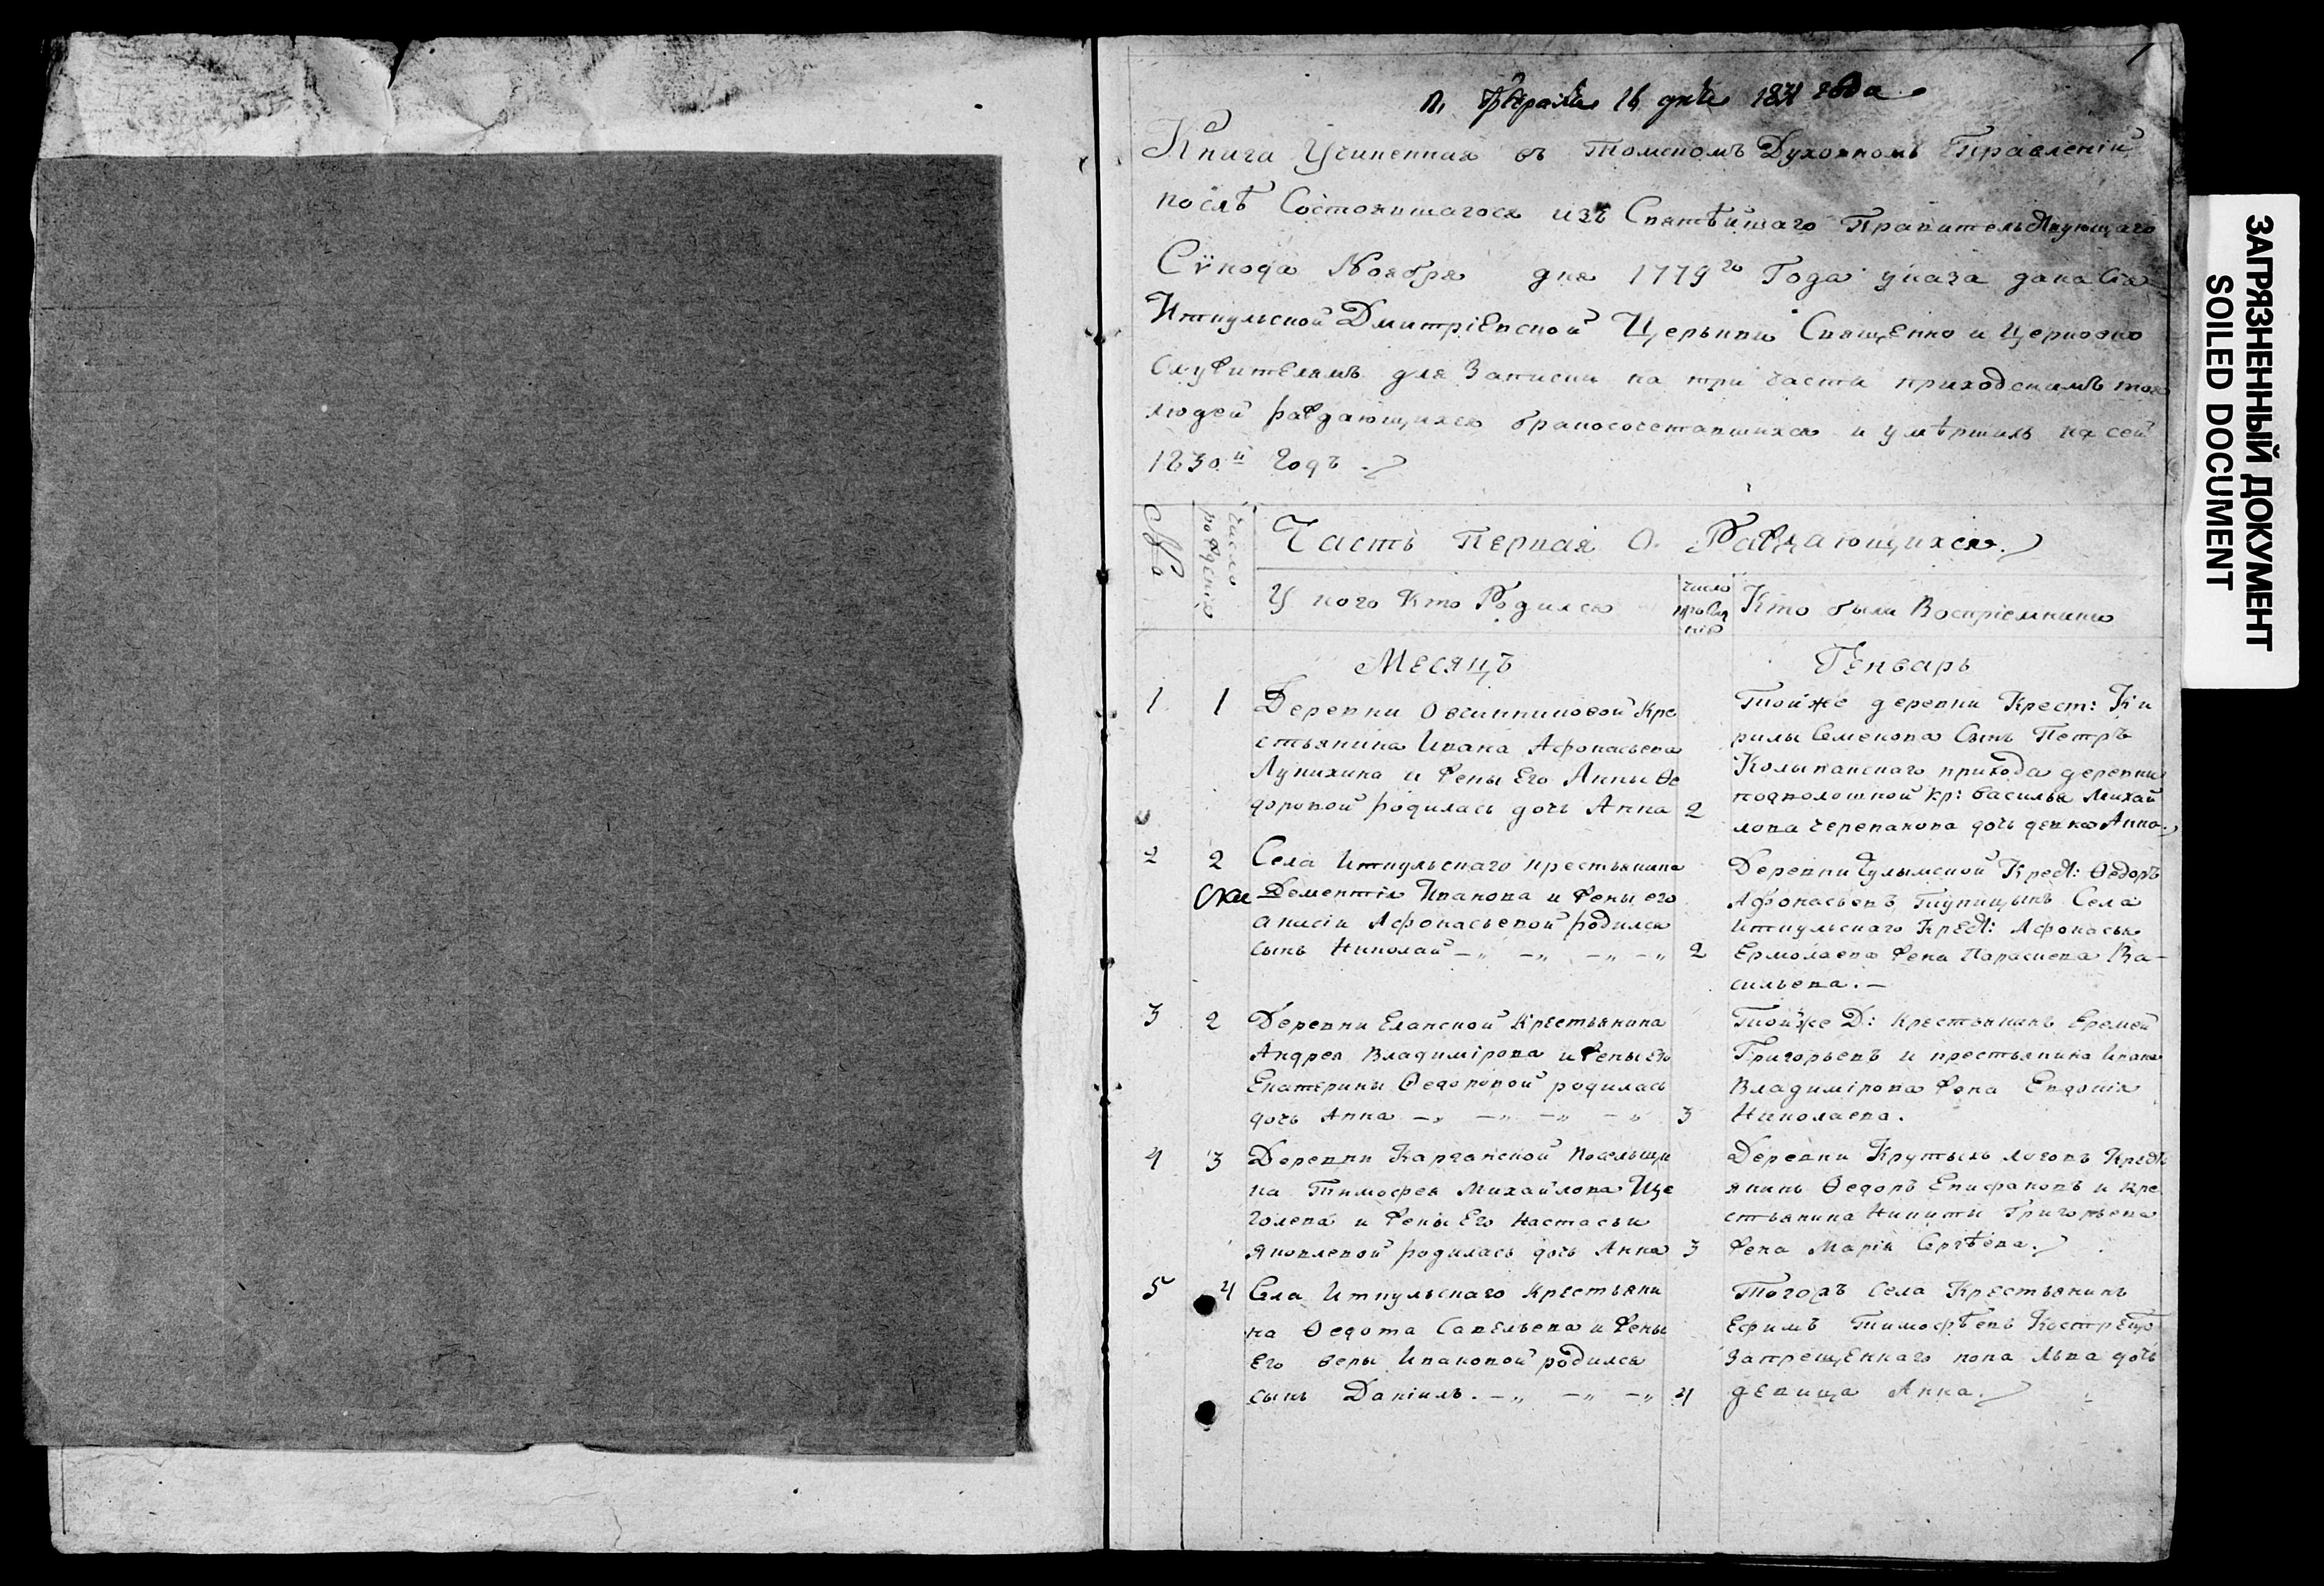 1
п. Февраля 16 дня 1831 года
Книга Учиненная въ Томскомъ Духовномъ Правленіи
послѣ Состоявшагося изъ Святѣйшаго Правительствующаго
Сѵнода Ноября дня 1779го Года указа дана сія
Иткульской Дмитріевской Церькви Священно и Церковно
служителямъ для Записки на три части приходскимъ тоя
людей раждающихся бракосочетавшихся и умѣршихъ на сей
1830й годъ.
№а
Число рожденія
Часть Первая О Раждающихся
У кого Кто Родился
число кто были Воспріемники
Месяцъ Генварь
1 1 Деревни Овчинниковой Кре
стьянина Ивана Афонасьева
Лунихина и жены Его Анны Ѳе
доровой родилась дочь Анна 2
Тойже деревни Крест: Ки
рилы Семенова Сынъ Петръ
Колыванскаго прихода деревни
подволошной Кр: василья Михай
лова черепанова дочь девка Анна.
2 2 Села Иткульскаго крестьянина
Дементія Иванова и жены его
анисіи Афонасьевой родился
сынъ Николай 2
Деревни Чулымской Крест: Ѳедоръ
Афонасьевъ Тупицынъ Села
Иткульскаго Крест: Афонасья
Ермолаева жена Параскева Ва-
сильева.
3 2 Деревни Еланской Крестьянина
Андрея Владимірова и жены его
Екатерины Ѳедоровой родилась
дочь Анна 3
Тойже Д: крестьянинъ Еремей
Григорьевъ и крестьянина Ивана
Владимірова жена Евдокія
Николаева.
4 3 Деревни Карганской Посельщи
ка Тимофея Михайлова Ще
голева и жены Его Настасьи
яковлевой родилась дочь Анна 3
Деревни Крутыхъ логовъ Крест
янинъ Ѳедоръ Епифановъ и кре
стьянина Никиты Григорьева
жена Марія Сергѣева.
5 4 Села Иткульскаго Крестьяни
на Ѳедота Савельева и жены
Его веры Ивановой родился
сынъ Даніилъ. 4
Тогожъ Села Крестьянинъ
Ефимъ Тимофѣевъ
Запрещеннаго попа Льва дочь
девица Анна.
ЗАГРЯЗНЕННЫЙ ДОКУМЕНТ
SOILED DOCUMENT